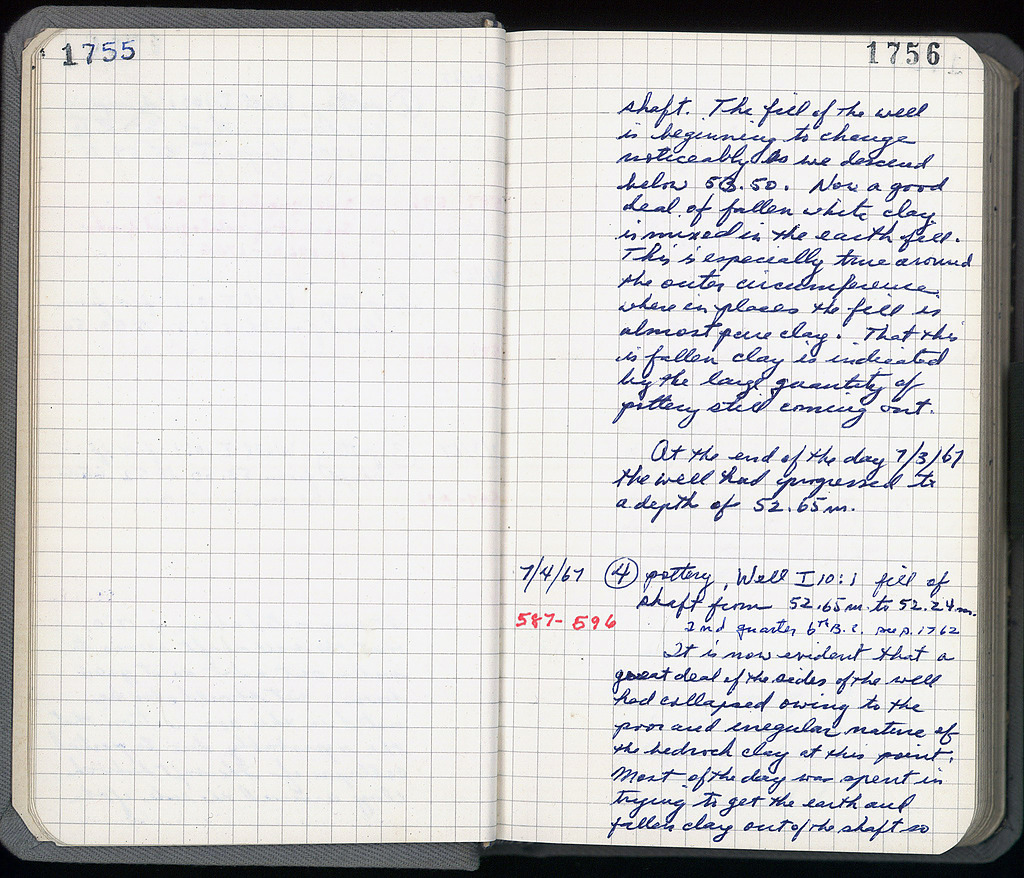 1755
1756
shaft. The fill of the well
is beginning to change
noticeably as we descend
below 53.50. Now a good
deal of fallen white clay
is mixed in the earth fill.
This is especially true around
the outer circumference
where in places the fill is
almost pure clay. That this
is fallen clay is indicated
by the large quantity of
pottery still coming out.
At the end of the day 7/3/67
the well had progressed to
a depth of 52.65 m.
7/4/67 4 pottery, Well I 10:1 fill of
shaft from 52.65 m. to 52.24 m.
587-596
2nd quarter 6th B.C. see p. 1762
It is now evident that a
great deal of the sides of the well
had collapsed owing to the
poor and irregular nature of
the bedrock clay at this point.
Most of the day was spent in
trying to get the earth and
fallen clay out of the shaft so